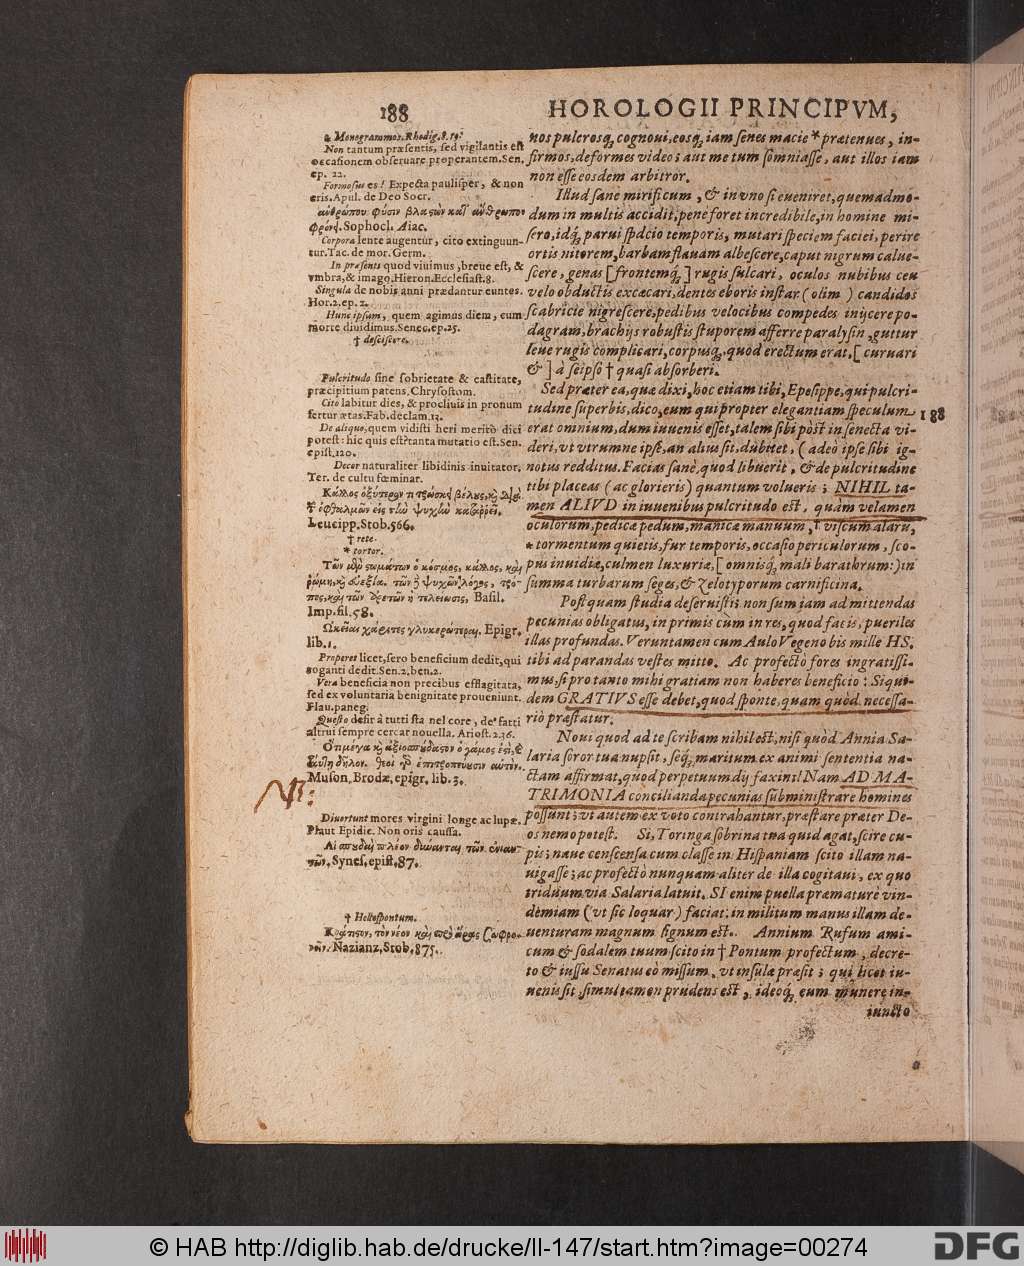 188
HOROLOGII PRINCIPVM,
* Monogrammos. Rhodig. 8. 19.
Non tantum præsentis, sed vigilantis est
occasionem obseruare properantem. Sen.
ep. 22.
Formosus es! Expecta paulisper, & non
eris. Apul. de Deo Socr.
Sophocl. Aiac.
Corpora lente augentur, cito extinguun-
tur. Tac. de mor. Germ.
In præsenti quod viuimus, breue est, &
vmbra, & imago. Hieron. Ecclesiast. 8.
Singula de nobis anni prædantur euntes.
Hor. 2. ep. 2.
Hunc ipsum, quem agimus diem, cum
morte diuidimus. Senec. ep. 25.
† desciscere.
Pulcritudo sine sobrietate & castitate,
præcipitium patens. Chrysostom.
Citò labitur dies, & procliuis in pronum
fertur ætas. Fab. declam. 13.
De aliquo, quem vidisti heri meritò dici
potest: hic quis est? tanta mutatio est. Sen.
epist. 120.
Decor naturaliter libidinis inuitator.
Ter. de cultu fœminar.
Leucipp. Stob. 566.
† rete.
* tortor.
Basil.
Imp. fil. 58.
Ὠκεῖαι χάριτες γλυκερώτεραι. Epigr.
lib. 1.
Properet licet, sero beneficium dedit, qui
roganti dedit. Sen. 2. ben. 2.
Vera beneficia non precibus efflagitata,
sed ex voluntaria benignitate proueniunt.
Flau. paneg.
Questo desir à tutti sta nel core, de' fatti
altrui sempre cercar nouella. Ariost. 2. 36.
Muson. Brodæ, epigr. lib. 3.
Diuortunt mores virgini longe ac lupæ.
Plaut Epidic. Non oris caussa.
Synes. epist. 87.
† Hellespontum.
Nazianz. Stob. 875.
nos pulcrosq́; cognoui, eosq́; iam senes macie * prætenues, in-
firmos, deformes video; aut me tum somniasse, aut illos iam
non esse eosdem arbitror.
Illud sane mirificum, & in vno si eueniret, quemadmo-
dum in multis accidit, penè foret incredibile, in homine mi-
sero, idq́; parui spacio temporis, mutari speciem faciei, perire
oris nitorem, barbam flauam albescere, caput nigrum calue-
scere, genas [frontemq́;] rugis sulcari, oculos nubibus ceu
velo obductis excæcari, dentes eboris instar (olim) candidos
scabricie nigrescere, pedibus velocibus compedes inijcere po-
dagram, brachijs robustis stuporem afferre paralysin, guttur
leue rugis complicari, corpusq́;, quod erectum erat, [curuari
&] à seipso † quasi absorberi.
Sed præter ea, quæ dixi, hoc etiam tibi, Epesippe, qui pulcri-
tudine superbis, dico, eum qui propter elegantiam speculum
188
erat omnium, dum iuuenis esset, talem sibi pòst in senecta vi-
deri, vt vtrumne ipse, an alius sit, dubitet, (adeò ipse sibi ig-
notus redditus. Facias sanè, quod libuerit, & de pulcritudine
tibi placeas (ac glorieris) quantum volueris; NIHIL ta-
men ALIVD in iuuenibus pulcritudo est, quàm velamen
oculorum, pedica pedum, manicæ manuum, † viscum alarū,
* tormentum quietis, fur temporis, occasio periculorum, sco-
pus inuidiæ, culmen luxuriæ, [omnisq́; mali barathrum:) in
summa turbarum seges, & Zelotyporum carnificina.
Postquam studia deseruistis non sum iam ad mittendas
pecunias obligatus, in primis cùm in res, quod facis, pueriles
illas profundas. Veruntamen cum Aulo Vegeno bis mille HS.
tibi ad parandas vestes mitto. Ac profectò fores ingratissi-
mus, si pro tanto mihi gratiam non haberes beneficio: Siqui-
dem GRATIVS esse debet, quod sponte, quam quòd necessa-
riò præstatur.
Noui quod ad te scribam nihil est, nisi quòd Annia Sa-
laria soror tua nupsit, seq́; maritum ex animi sententia na-
ctam affirmat, quod perpetuum dij faxint! Nam AD MA-
TRIMONIA concilianda pecunias subministrare homines
possunt; vt autem ex voto contrahantur, præstare præter De-
os nemo potest. Si, Toringa sobrina tua quid agat, scire cu-
pis; naue censcensa cum classe in Hispaniam scito illam na-
uigasse; ac profectò nunquam aliter de illa cogitaui, ex quo
triduum via Salaria latuit. SI enim puella præmaturè vin-
demiam (vt sic loquar) faciat: in militum manus illam de-
uenturam magnum signum est. Annium Rufum ami-
cum & sodalem tuum scito in † Pontum profectum, decre-
to & iussu Senatus eò missum, vt insulæ præsit; qui licet iu-
uenis sit, simul tamen prudens est, ideoq́; eum munere in-
iuncto
© HAB http://diglib.hab.de/drucke/ll-147/start.htm?image=00274
DFG